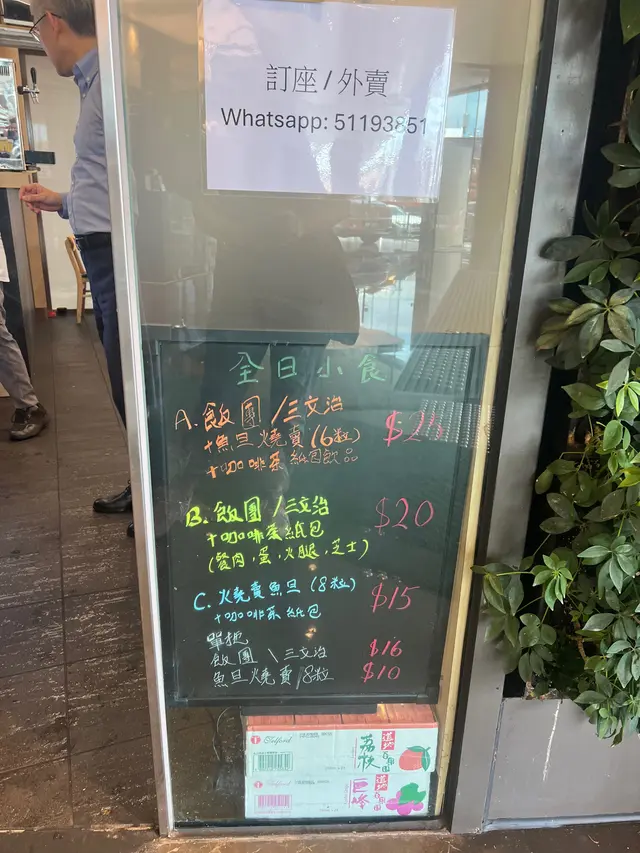 訂座 / 外賣
Whatsapp: 51193851
全日小食
A. 飯團 / 三文治
+魚旦燒賣 (6粒)
+咖啡茶 紙包飲品
B. 飯團 / 三文治 $20
+咖啡茶 紙包
(餐肉，蛋，火腿，芝士)
C. 火燒賣魚旦 (8粒) $15
+咖啡茶 紙包
單拖
飯團 \ 三文治 $16
魚旦燒賣 /8粒 $10
荔枝
道地